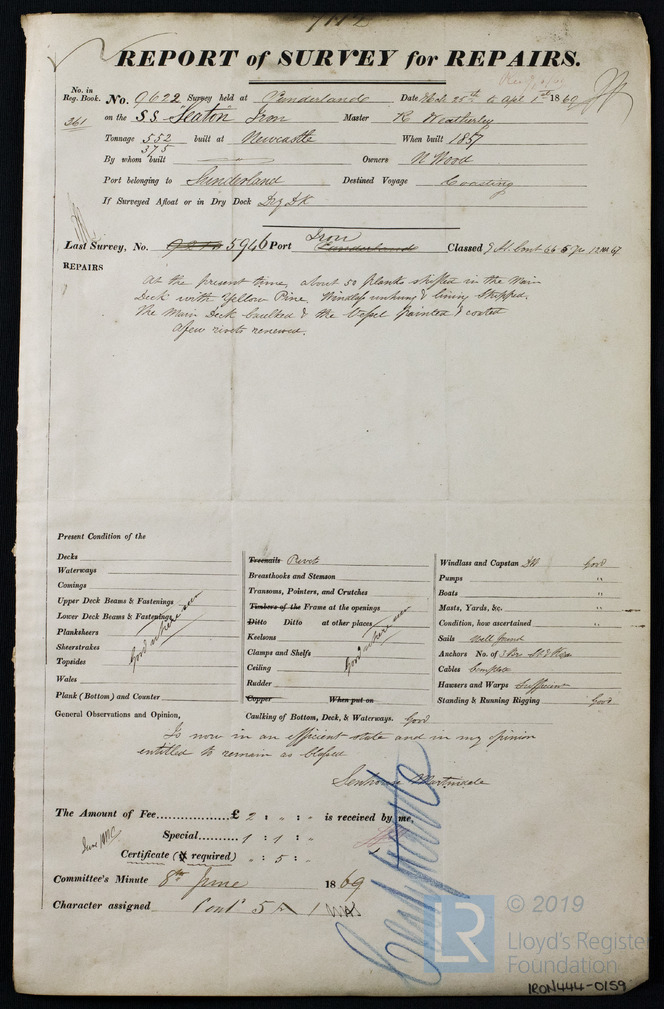 REPORT of SURVEY for REPAIRS.
No. in Reg. Book. No. 9622 Survey held at Sunderland Date 25th to Apl 1st 1869
261 on the SS "Seaton" Iron Master R Weatherley
Tonnage 552 built at Newcastle When built 1857
375
By whom built Owners W Wood
Port belonging to Sunderland Destined Voyage Coasting
If Surveyed Afloat or in Dry Dock Dry Dk
Last Survey, No. 5946 Port Iron Sunderland Classed
REPAIRS
At the present time, about 50 planks shifted in the Main
Deck with Yellow Pine, Windlass unhung & lining stripped.
The Main Deck Caulked & the Vessel painted & coated
A few rivets renewed.
Present Condition of the
Decks
Waterways
Comings
Upper Deck Beams & Fastenings
Lower Deck Beams & Fastenings
Planksheers
Sheerstrakes
Topsides
Wales
Plank (Bottom) and Counter
Good where seen
Treenails Rivets
Breasthooks and Stemson
Transoms, Pointers, and Crutches
Timbers of the Frame at the openings
Ditto Ditto at other places
Keelsons
Clamps and Shelfs
Ceiling
Rudder
Copper When put on
Good where seen
Caulking of Bottom, Deck, & Waterways. Good
Windlass and Capstan Good
Pumps "
Boats "
Masts, Yards, &c. "
Condition, how ascertained "
Sails Well found
Anchors No. of
Cables Complete
Hawsers and Warps Sufficient
Standing & Running Rigging Good
General Observations and Opinion,
Is now in an efficient state and in my opinion
entitled to remain as Classed
Senhouse Martindale
The Amount of Fee £ 2 : " : " is received by me,
Special 1 : 1 : "
Certificate (if required) " : 5 : "
Committee's Minute 8th June 1869
Character assigned Contd 5 A 1
© 2019
LR
Lloyd's Register
Foundation
IRON444-0159